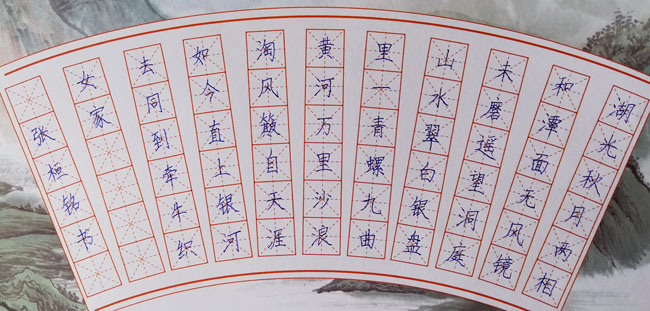 湖光秋月两相
和潭面无风镜
未磨遥望洞庭
山水翠白银盘
里一青螺九曲
黄河万里沙浪
淘风簸自天涯
如今直上银河
去同到牵牛织
女家
张桓铭书